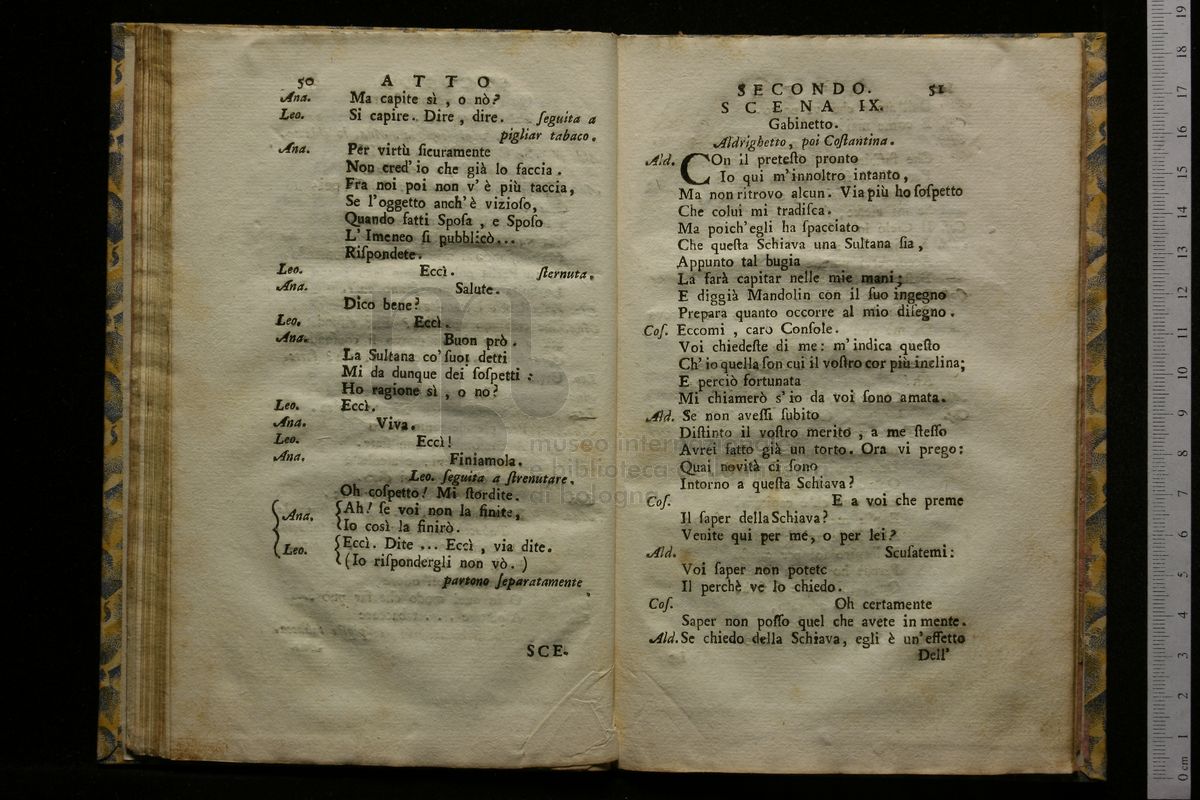 50 ATTO
Ana. Ma capite sì, o nò?
Leo. Si capire. Dire, dire. ſeguita a
pigliar tabaco.
Ana. Per virtù ſicuramente
Non cred' io che già lo faccia.
Fra noi poi non v' è più taccia,
Se l'oggetto anch' è vizioſo,
Quando fatti Spoſa, e Spoſo
L' Imeneo ſi pubblicò...
Riſpondete.
Leo. Eccì. ſternuta.
Ana. Salute.
Dico bene?
Leo. Eccì.
Ana. Buon prò.
La Sultana co' ſuoi detti
Mi da dunque dei ſoſpetti:
Ho ragione sì, o no?
Leo. Eccì.
Ana. Viva.
Leo. Eccì!
Ana. Finiamola.
Leo. ſeguita a ſtrenutare.
Oh coſpetto! Mi ſtordite.
Ana. Ah! ſe voi non la finite,
Io così la finirò.
Leo. Eccì. Dite ... Eccì, via dite.
(Io riſpondergli non vò.)
partono ſeparatamente
SCE-
SECONDO. 51
SCENA IX.
Gabinetto.
Aldrighetto, poi Coſtantina.
Ald. COn il preteſto pronto
Io qui m'innoltro intanto,
Ma non ritrovo alcun. Via più ho ſoſpetto
Che colui mi tradiſca.
Ma poich'egli ha ſpacciato
Che queſta Schiava una Sultana ſia,
Appunto tal bugia
La farà capitar nelle mie mani;
E diggià Mandolin con il ſuo ingegno
Prepara quanto occorre al mio diſegno.
Coſ. Eccomi, caro Conſole.
Voi chiedeſte di me: m'indica queſto
Ch' io quella ſon cui il voſtro cor più inclina;
E perciò fortunata
Mi chiamerò s'io da voi ſono amata.
Ald. Se non aveſſi ſubito
Diſtinto il voſtro merito, a me ſteſſo
Avrei fatto già un torto. Ora vi prego:
Quai novità ci ſono
Intorno a queſta Schiava?
Coſ. E a voi che preme
Il ſaper della Schiava?
Venite qui per me, o per lei?
Ald. Scuſatemi:
Voi ſaper non potete
Il perchè ve lo chiedo.
Coſ. Oh certamente
Saper non poſſo quel che avete in mente.
Ald. Se chiedo della Schiava, egli è un'effetto
Dell'
museo internazionale
e biblioteca
di bologna
0 cm 1 2 3 4 5 6 7 8 9 10 11 12 13 14 15 16 17 18 19